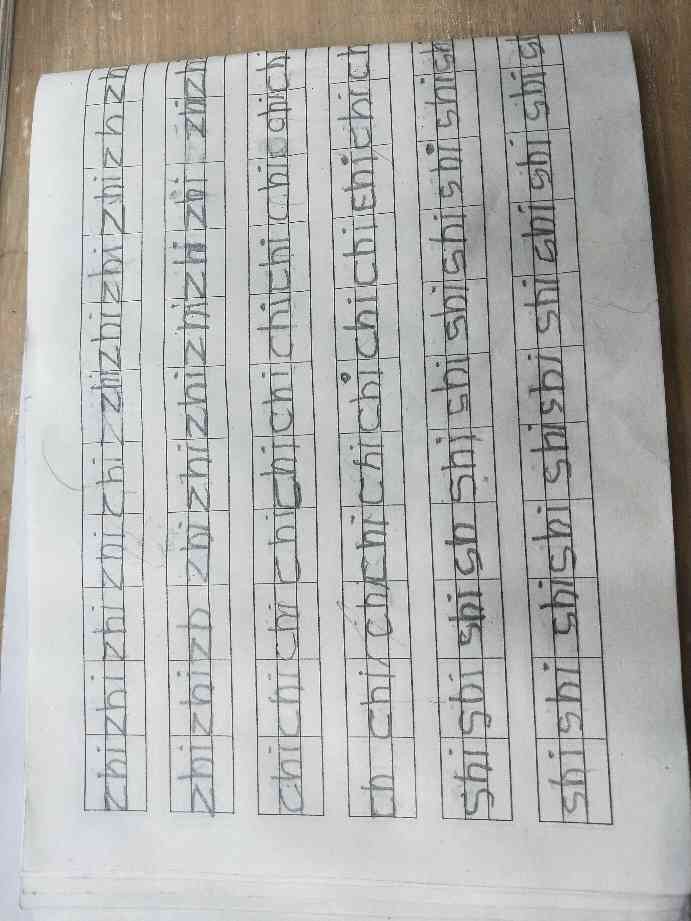 zhi zhi zhi zhi zhi zhi zhi zhi zhi zhi zh
zhi zhi zh zhi zhi zhi zhi zhi zhi zhi zh
chi chi chi chi chi chi chi chi chi chi ch
ch chi chi chi chi chi chi chi chi chi ch
shi shi shi sh shi shi shi shi shi shi sh
shi shi shi shi shi shi shi shi shi shi s